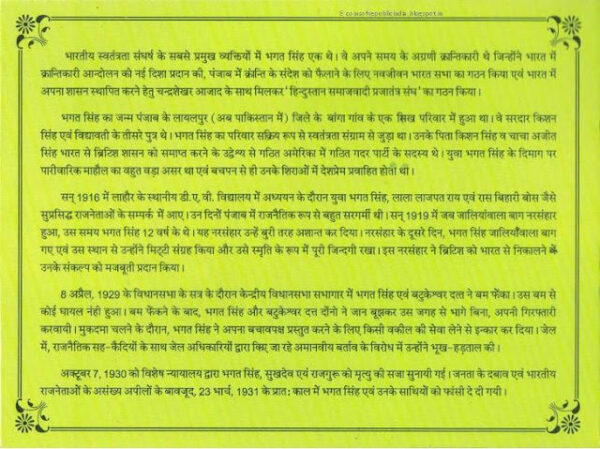 © coinsofrepublicindia.blogspot.in
भारतीय स्वतंत्रता संघर्ष के सबसे प्रमुख व्यक्तियों में भगत सिंह एक थे। वे अपने समय के अग्रणी क्रान्तिकारी थे जिन्होंने भारत में
क्रान्तिकारी आन्दोलन की नई दिशा प्रदान की, पंजाब में क्रांन्ति के संदेश को फैलाने के लिए नवजीवन भारत सभा का गठन किया एवं भारत में
अपना शासन स्थापित करने हेतु चन्द्रशेखर आजाद के साथ मिलकर 'हिन्दुस्तान समाजवादी प्रजातंत्र संघ' का गठन किया।
भगत सिंह का जन्म पंजाब के लायलपुर (अब पाकिस्तान में) जिले के बांगा गांव के एक सिख परिवार में हुआ था। वे सरदार किशन
सिंह एवं विद्यावती के तीसरे पुत्र थे। भगत सिंह का परिवार सक्रिय रूप से स्वतंत्रता संग्राम से जुड़ा था। उनके पिता किशन सिंह व चाचा अजीत
सिंह भारत से ब्रिटिश शासन को समाप्त करने के उद्देश्य से गठित अमेरिका में गठित गदर पार्टी के सदस्य थे। युवा भगत सिंह के दिमाग पर
पारीवारिक माहौल का बहुत वड़ा असर था एवं बचपन से ही उनके शिराओं में देशप्रेम प्रवाहित होती थी।
सन् 1916 में लाहौर के स्थानीय डी.ए. वी. विद्यालय में अध्ययन के दौरान युवा भगत सिंह, लाला लाजपत राय एवं रास बिहारी बोस जैसे
सुप्रसिद्ध राजनेताओं के सम्पर्क में आए। उन दिनों पंजाब में राजनैतिक रूप से बहुत सरगर्मी थी। सन् 1919 में जब जालियांवाला बाग नरसंहार
हुआ, उस समय भगत सिंह 12 वर्ष के थे। यह नरसंहार उन्हें बुरी तरह अशान्त कर दिया। नरसंहार के दूसरे दिन, भगत सिंह जालियाँवाला बाग
गए एवं उस स्थान से उन्होंने मिट्टी संग्रह किया और उसे स्मृति के रूप में पूरी जिन्दगी रखा। इस नरसंहार ने ब्रिटिश को भारत से निकालने के
उनके संकल्प को मजबूती प्रदान किया।
8 अप्रैल, 1929 के विधानसभा के सत्र के दौरान केन्द्रीय विधानसभा सभागार में भगत सिंह एवं बटुकेश्वर दत्त ने बम फेंका। उस बम से
कोई घायल नंही हुआ। बम फेंकने के बाद, भगत सिंह और बटुकेश्वर दत्त दोंनो ने जान बूझकर उस जगह से भागे बिना, अपनी गिरफ्तारी
करवायी। मुकदमा चलने के दौरान, भगत सिंह ने अपना बचावपक्ष प्रस्तुत करने के लिए किसी वकील की सेवा लेने से इन्कार कर दिया। जेल
में, राजनैतिक सह-कैदियों के साथ जेल अधिकारियों द्वारा किए जा रहे अमानवीय बर्ताव के विरोध में उन्होंने भूख-हड़ताल की।
अक्टूबर 7, 1930 को विशेष न्यायालय द्वारा भगत सिंह, सुखदेव एवं राजगुरू को मृत्यु की सजा सुनायी गई। जनता के दबाव एवं भारतीय
राजनेताओं के असंख्य अपीलों के बावजूद, 23 मार्च, 1931 के प्रात: काल में भगत सिंह एवं उनके साथियों को फांसी दे दी गयी।